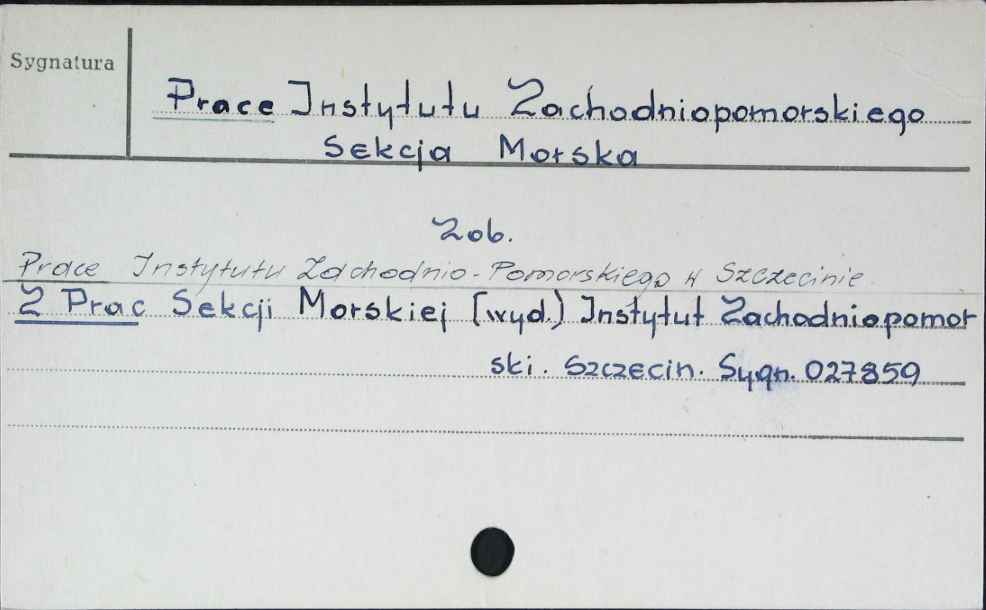 Sygnatura
Prace Instytutu Zachodniopomorskiego
Sekcja Morska
Zob.
Prace Instytutu Zachodnio-Pomorskiego w Szczecinie.
Z Prac Sekcji Morskiej [wyd.) Instytut Zachodniopomor
ski. Szczecin. Sygn. 027859